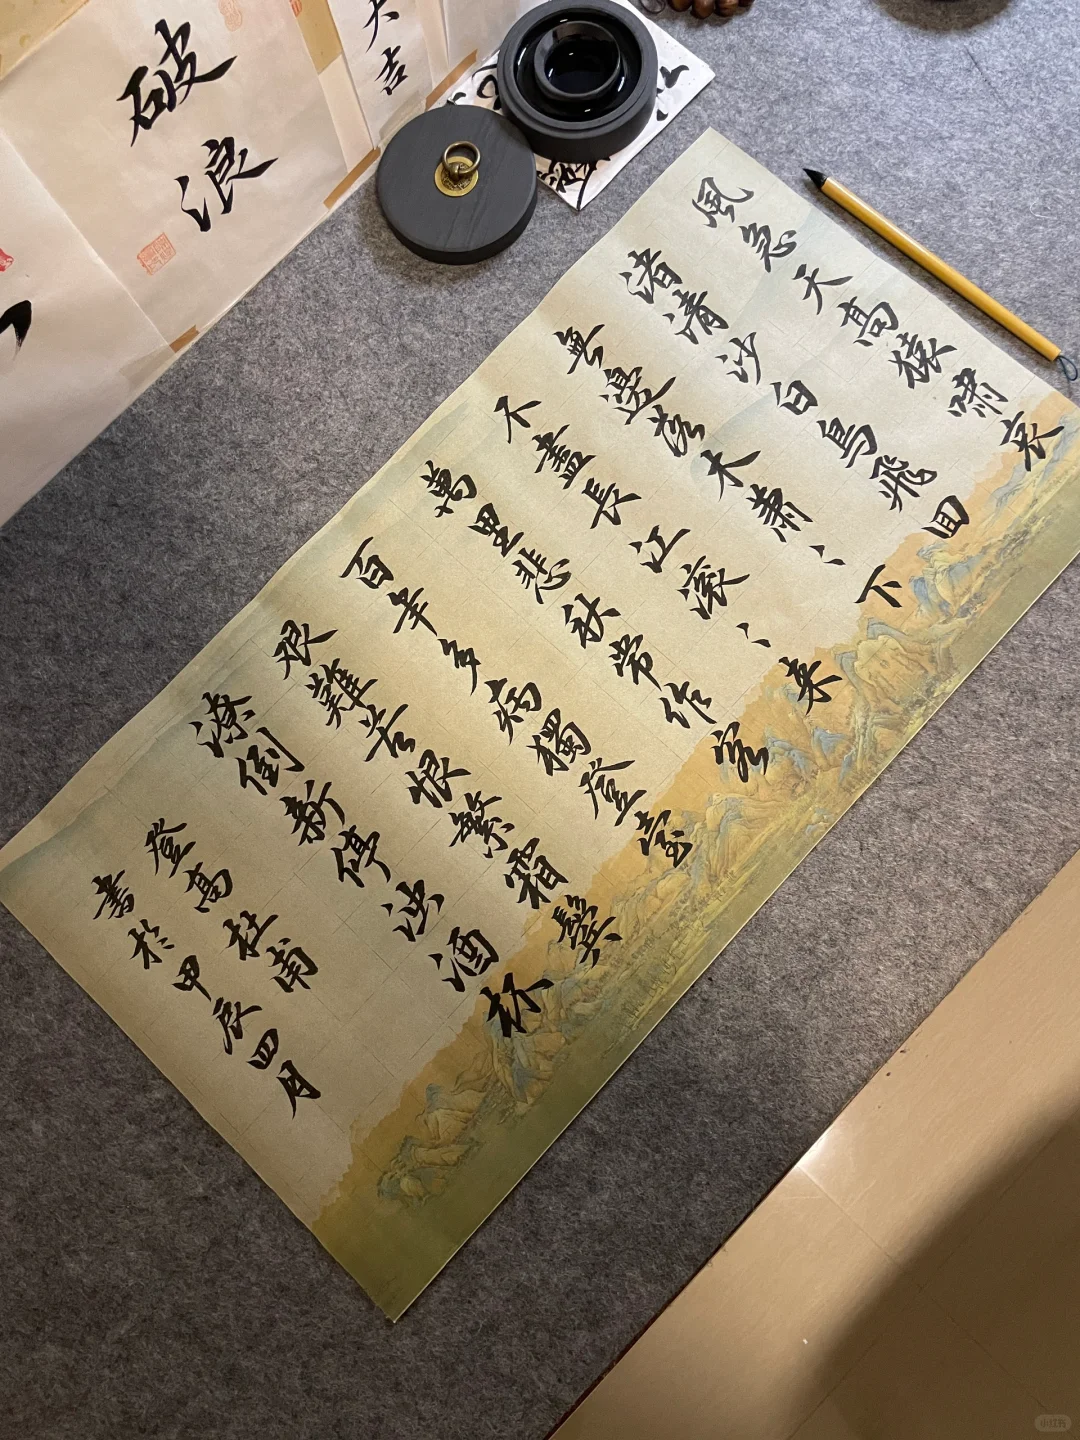 風急天高猿啸哀
渚清沙白鳥飛回
無邊落木蕭、、下
不盡長江滚、、来
萬里悲秋常作客
百年多病獨登臺
艰難苦恨繁霜鬓
潦倒新停浊酒杯
登高杜甫
書於甲辰四月
破浪
大吉
小红书